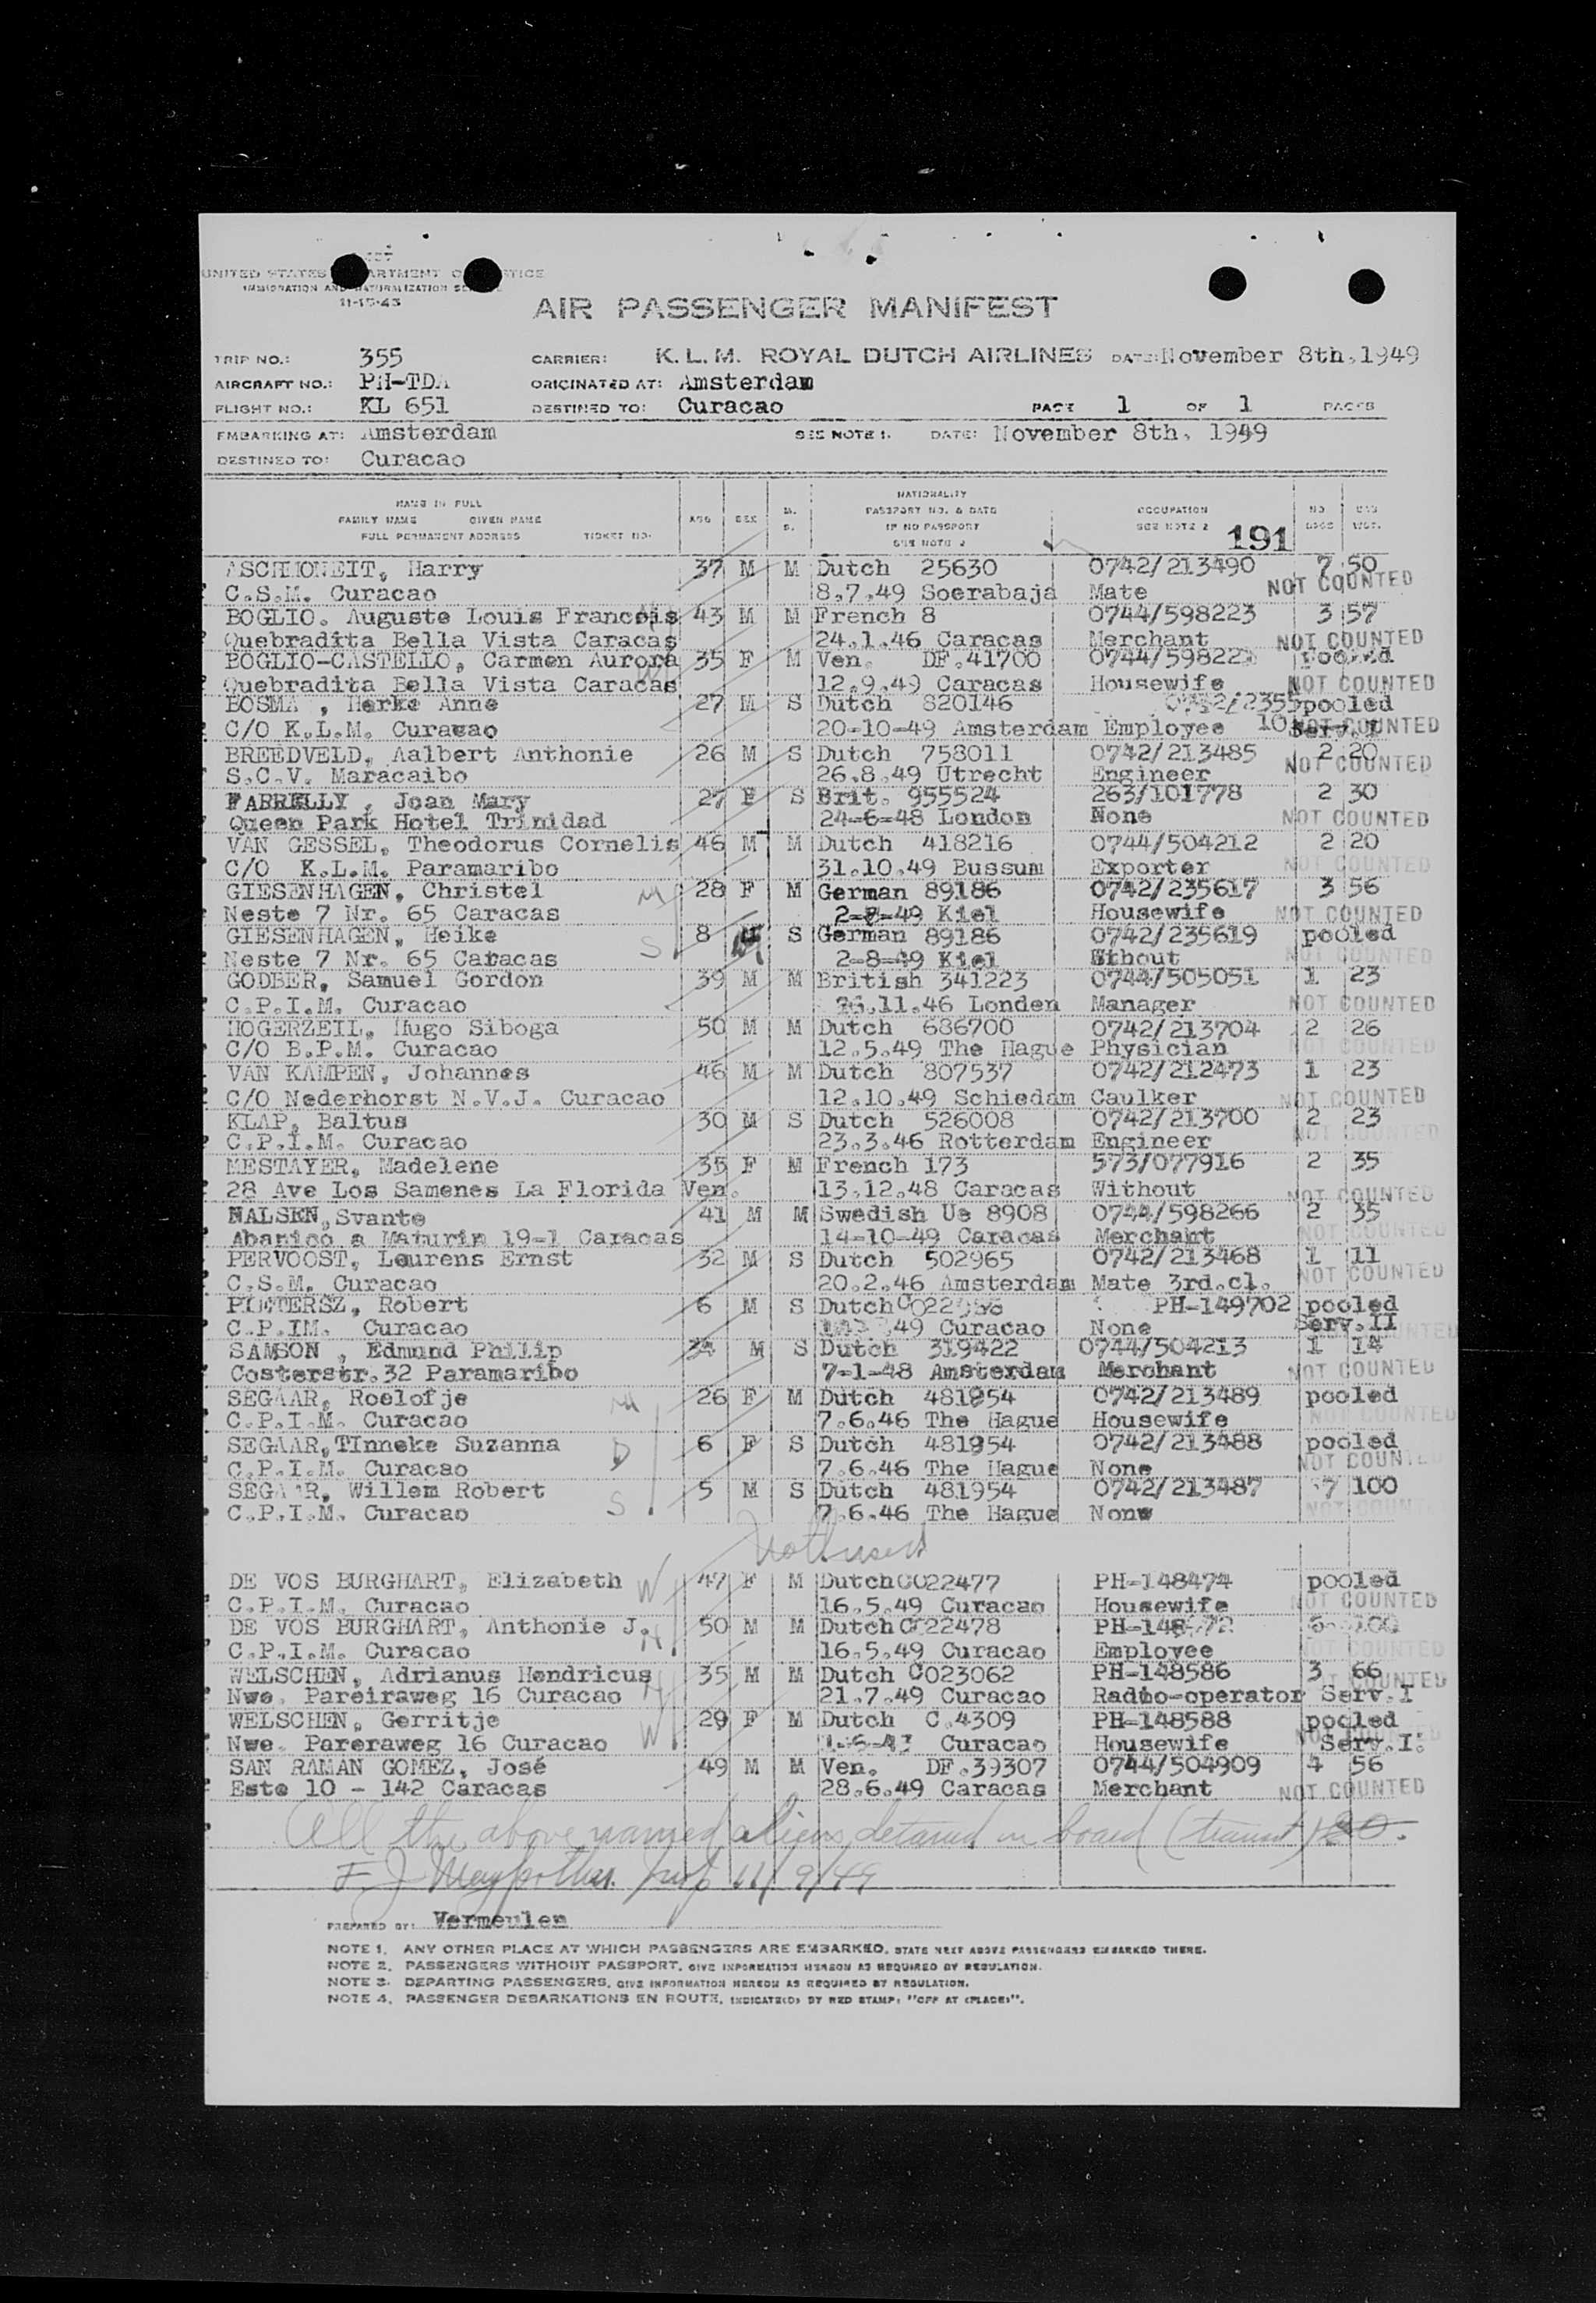 UNITED STATES DEPARTMENT OF JUSTICE
IMMIGRATION AND NATURALIZATION SERVICE
11-15-43
AIR PASSENGER MANIFEST
TRIP NO.: 355 CARRIER: K.L.M. ROYAL DUTCH AIRLINES DATE: November 8th, 1949
AIRCRAFT NO.: PH-TDA ORIGINATED AT: Amsterdam
FLIGHT NO.: KL 651 DESTINED TO: Curacao PAGE 1 OF 1 PAGES
EMBARKING AT: Amsterdam SEE NOTE 1. DATE: November 8th, 1949
DESTINED TO: Curacao
NAME IN FULL
FAMILY NAME GIVEN NAME
FULL PERMANENT ADDRESS TICKET NO.
AGE SEX M. S.
NATIONALITY
PASSPORT NO. & DATE
IF NO PASSPORT
SEE NOTE 2
OCCUPATION
SEE NOTE 2 191
NO BAGS WGT.
ASCHMONEIT, Harry 37 M M Dutch 25630 0742/213490 7 50
C.S.M. Curacao 8.7.49 Soerabaja Mate NOT COUNTED
BOGLIO. Auguste Louis Francois 43 M M French 8 0744/598223 3 57
Quebradita Bella Vista Caracas 24.1.46 Caracas Merchant NOT COUNTED
BOGLIO-CASTELLO, Carmen Aurora 35 F M Ven. DF.41700 pooled
Quebradita Bella Vista Caracas 12.9.49 Caracas Housewife NOT COUNTED
BOSMA , Herke Anne 27 M S Dutch 820146 pooled
C/O K.L.M. Curacao 20-10-49 Amsterdam Employee 10 Serv.I NOT COUNTED
BREEDVELD, Aalbert Anthonie 26 M S Dutch 758011 0742/213485 2 20
S.C.V. Maracaibo 26.8.49 Utrecht Engineer NOT COUNTED
FARRELLY , Joan Mary 27 F S Brit. 955524 263/101778 2 30
Queen Park Hotel Trinidad 24-6-48 London None NOT COUNTED
VAN GESSEL, Theodorus Cornelis 46 M M Dutch 418216 0744/504212 2 20
C/O K.L.M. Paramaribo 31.10.49 Bussum Exporter NOT COUNTED
GIESENHAGEN, Christel M 28 F M German 89186 0742/235617 3 56
Neste 7 Nr. 65 Caracas 2-8-49 Kiel Housewife NOT COUNTED
GIESENHAGEN, Heike S 8 M S German 89186 0742/235619 pooled
Neste 7 Nr. 65 Cabacas 2-8-49 Kiel Without NOT COUNTED
GODBER, Samuel Gordon 39 M M British 341223 0744/505051 1 23
C.P.I.M. Curacao 26.11.46 Londen Manager NOT COUNTED
HOGERZEIL, Hugo Siboga 50 M M Dutch 686700 0742/213704 2 26
C/O B.P.M. Curacao 12.5.49 The Hague Physician NOT COUNTED
VAN KAMPEN, Johannes 46 M M Dutch 807537 0742/212473 1 23
C/O Nederhorst N.V.J. Curacao 12.10.49 Schiedam Caulker NOT COUNTED
KLAP, Baltus 30 M S Dutch 526008 0742/213700 2 23
C.P.I.M. Curacao 23.3.46 Rotterdam Engineer NOT COUNTED
MESTAYER, Madelene 35 F M French 173 573/077916 2 35
28 Ave Los Samenes La Florida Ven. 13.12.48 Caracas Without NOT COUNTED
NALSEN, Svante 41 M M Swedish Us 8908 0744/598266 2 35
Abanico a Maturin 19-1 Caracas 14-10-49 Caracas Merchant NOT COUNTED
PERVOOST, Lourens Ernst 32 M S Dutch 502965 0742/213468 1 11
C.S.M. Curacao 20.2.46 Amsterdam Mate 3rd.cl. NOT COUNTED
PIETERSZ, Robert 6 M S Dutch PH-149702 pooled
C.P.IM. Curacao 49 Curacao None Serv.II NOT COUNTED
SAMSON , Edmund Philip 34 M S Dutch 319422 0744/504213 1 14
Costerstr.32 Paramaribo 7-1-48 Amsterdam Merchant NOT COUNTED
SEGAAR, Roelofje M 26 F M Dutch 481954 0742/213489 pooled
C.P.I.M. Curacao 7.6.46 The Hague Housewife NOT COUNTED
SEGAAR, TInneke Suzanna D 6 F S Dutch 481954 0742/213488 pooled
C.P.I.M. Curacao 7.6.46 The Hague None NOT COUNTED
SEGAAR, Willem Robert S 5 M S Dutch 481954 0742/213487 7 100
C.P.I.M. Curacao 7.6.46 The Hague None NOT COUNTED
Not used
DE VOS BURGHART, Elizabeth W 47 F M Dutch CO22477 PH-148474 pooled
C.P.I.M. Curacao 16.5.49 Curacao Housewife NOT COUNTED
DE VOS BURGHART, Anthonie J. H 50 M M Dutch CO22478 100
C.P.I.M. Curacao 16.5.49 Curacao Employee NOT COUNTED
WELSCHEN, Adrianus Hendricus H 35 M M Dutch CO23062 PH-148586 3 66
Nwe. Pareiraweg 16 Curacao 21.7.49 Curacao Radio-operator Serv.I NOT COUNTED
WELSCHEN, Gerritje W 29 F M Dutch C.4309 PH-148588 pooled
Nwe. Pareraweg 16 Curacao Curacao Housewife Serv.I.
SAN RAMAN GOMEZ, José 49 M M Ven. DF.39307 0744/504909 4 56
Este 10 - 142 Caracas 28.6.49 Caracas Merchant NOT COUNTED
All the above named aliens detained on board (transit)
F J 11/9/49
PREPARED BY: Vermeulen
NOTE 1. ANY OTHER PLACE AT WHICH PASSENGERS ARE EMBARKED, STATE NEXT ABOVE PASSENGERS EMBARKED THERE.
NOTE 2. PASSENGERS WITHOUT PASSPORT, GIVE INFORMATION HEREON AS REQUIRED BY REGULATION.
NOTE 3. DEPARTING PASSENGERS, GIVE INFORMATION HEREON AS REQUIRED BY REGULATION.
NOTE 4. PASSENGER DEBARKATIONS EN ROUTE, INDICATE(D) BY RED STAMP: "OFF AT (PLACE)".